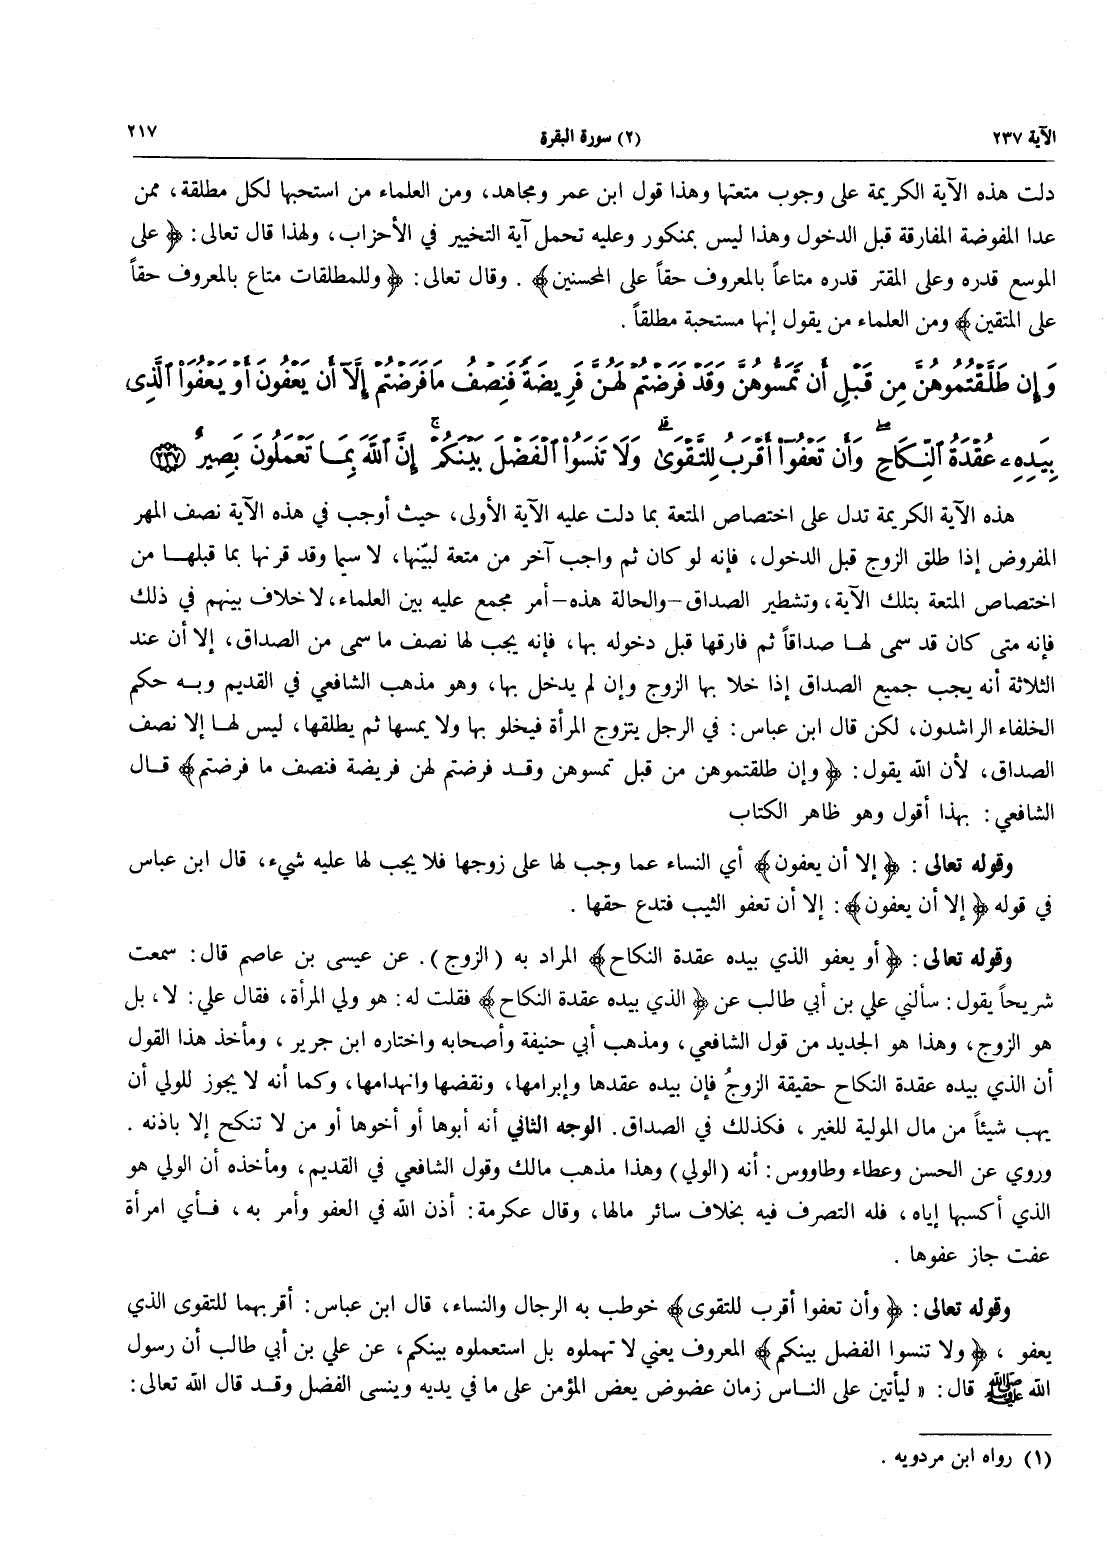 الآية ٢٣٧ (٢) سورة البقرة ٢١٧
دلت هذه الآية الكريمة على وجوب متعتها وهذا قول ابن عمر ومجاهد، ومن العلماء من استحبها لكل مطلقة، ممن
عدا المفوضة المفارقة قبل الدخول وهذا ليس بمنكور وعليه تحمل آية التخيير في الأحزاب، ولهذا قال تعالى: ﴿ على
الموسع قدره وعلى المقتر قدره متاعاً بالمعروف حقاً على المحسنين﴾ . وقال تعالى: ﴿ وللمطلقات متاع بالمعروف حقاً
على المتقين﴾ ومن العلماء من يقول إنها مستحبة مطلقاً .
وَإِن طَلَّقْتُمُوهُنَّ مِن قَبْلِ أَن تَمَسُّوهُنَّ وَقَدْ فَرَضْتُمْ لَهُنَّ فَرِيضَةً فَنِصْفُ مَا فَرَضْتُمْ إِلَّآ أَن يَعْفُونَ أَوْ يَعْفُوَا۟ ٱلَّذِى
بِيَدِهِۦ عُقْدَةُ ٱلنِّكَاحِ ۚ وَأَن تَعْفُوٓا۟ أَقْرَبُ لِلتَّقْوَىٰ ۚ وَلَا تَنسَوُا۟ ٱلْفَضْلَ بَيْنَكُمْ ۚ إِنَّ ٱللَّهَ بِمَا تَعْمَلُونَ بَصِيرٌ ٢٣٧
هذه الآية الكريمة تدل على اختصاص المتعة بما دلت عليه الآية الأولى، حيث أوجب في هذه الآية نصف المهر
المفروض إذا طلق الزوج قبل الدخول، فإنه لو كان ثم واجب آخر من متعة لبيّنها، لا سيما وقد قرنها بما قبلها من
اختصاص المتعة بتلك الآية، وتشطير الصداق -والحالة هذه- أمر مجمع عليه بين العلماء، لا خلاف بينهم في ذلك
فإنه متى كان قد سمى لها صداقاً ثم فارقها قبل دخوله بها، فإنه يجب لها نصف ما سمى من الصداق، إلا أن عند
الثلاثة أنه يجب جميع الصداق إذا خلا بها الزوج وإن لم يدخل بها، وهو مذهب الشافعي في القديم وبه حكم
الخلفاء الراشدون، لكن قال ابن عباس: في الرجل يتزوج المرأة فيخلو بها ولا يمسها ثم يطلقها، ليس لها إلا نصف
الصداق، لأن الله يقول: ﴿ وإن طلقتموهن من قبل تمسوهن وقد فرضتم لهن فريضة فنصف ما فرضتم﴾ قال
الشافعي: بهذا أقول وهو ظاهر الكتاب
وقوله تعالى: ﴿ إلا أن يعفون﴾ أي النساء عما وجب لها على زوجها فلا يجب لها عليه شيء، قال ابن عباس
في قوله ﴿ إلا أن يعفون﴾: إلا أن تعفو الثيب فتدع حقها .
وقوله تعالى: ﴿ أو يعفو الذي بيده عقدة النكاح﴾ المراد به (الزوج). عن عيسى بن عاصم قال: سمعت
شريحاً يقول: سألني علي بن أبي طالب عن ﴿ الذي بيده عقدة النكاح﴾ فقلت له: هو ولي المرأة، فقال علي: لا، بل
هو الزوج، وهذا هو الجديد من قول الشافعي، ومذهب أبي حنيفة وأصحابه واختاره ابن جرير، ومأخذ هذا القول
أن الذي بيده عقدة النكاح حقيقة الزوجُ فإن بيده عقدها وإبرامها، ونقضها وانهدامها، وكما أنه لا يجوز للولي أن
يهب شيئاً من مال المولية للغير، فكذلك في الصداق. الوجه الثاني أنه أبوها أو أخوها أو من لا تنكح إلا باذنه .
وروي عن الحسن وعطاء وطاووس: أنه (الولي) وهذا مذهب مالك وقول الشافعي في القديم، ومأخذه أن الولي هو
الذي أكسبها إياه، فله التصرف فيه بخلاف سائر مالها، وقال عكرمة: أذن الله في العفو وأمر به، فأي امرأة
عفت جاز عفوها .
وقوله تعالى: ﴿ وأن تعفوا أقرب للتقوى﴾ خوطب به الرجال والنساء، قال ابن عباس: أقربهما للتقوى الذي
يعفو، ﴿ ولا تنسوا الفضل بينكم﴾ المعروف يعني لا تهملوه بل استعملوه بينكم، عن علي بن أبي طالب أن رسول
الله ﷺ قال: « ليأتين على الناس زمان عضوض يعض المؤمن على ما في يديه وينسى الفضل وقد قال الله تعالى:
(١) رواه ابن مردويه .